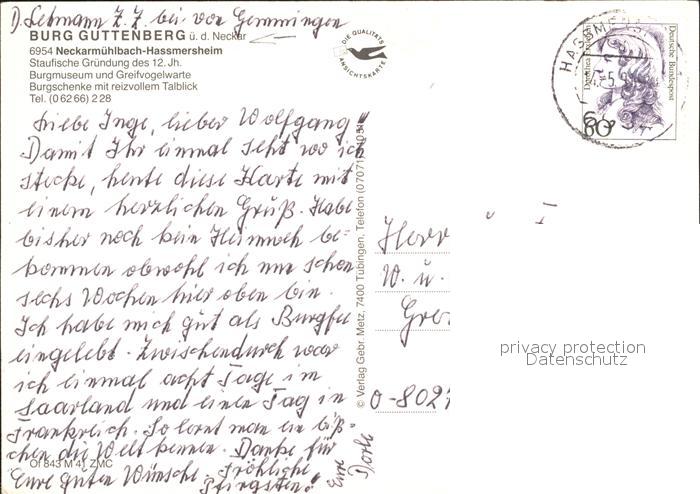 D. Lehmann z. Z. bei von Gemmingen
BURG GUTTENBERG ü. d. Neckar
6954 Neckarmühlbach-Hassmersheim
Staufische Gründung des 12. Jh.
Burgmuseum und Greifvogelwarte
Burgschenke mit reizvollem Talblick
Tel. (0 62 66) 2 28
DIE QUALITÄTS
ANSICHTSKARTE
Deutsche Bundespost
Dorothea Erxleben
60
HASSMERS
Liebe Inge, lieber Wolfgang
Damit Ihr einmal seht wo ich
stecke, heute diese Karte mit
einem herzlichen Gruß. Habe
bisher noch kein Heimweh be-
kommen obwohl ich nun schon
sechs Wochen hier oben bin.
Ich habe mich gut als Burgfee
eingelebt. Zwischendurch war
ich einmal acht Tage im
Saarland und einen Tag in
Frankreich. So lernt man ein biß-
chen die Welt kennen. Danke für
Eure guten Wünsche. Fröhliche
Pfingsten!
Eure
Dorle
Of 843 M 41 ZMC
© Verlag Gebr. Metz, 7400 Tübingen, Telefon (07071)
Herr
W. u.
Gre
O-802
privacy protection
Datenschutz